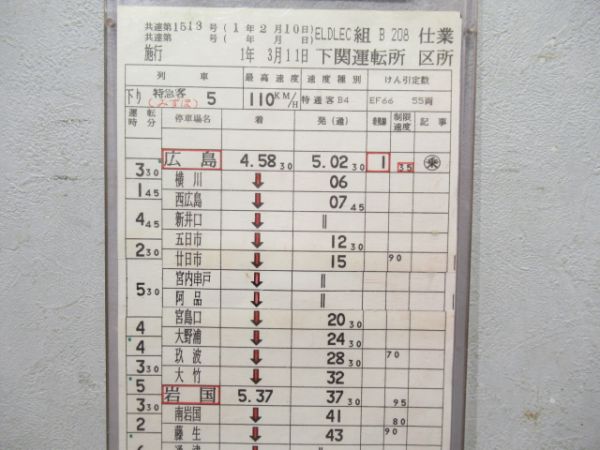 共達第1513号(1年2月10日)ELDLEC組 B 208 仕業
共達第 号( 年 月 日)
施行 1年 3月11日 下関運転所 区所
列車 最高速度 速度種別 けん引定数
下り 特急客 5 110KM/H 特通客B4 EF66 55両
(みずほ)
運転時分 停車場名 着 発(通) 着発線 制限速度 記事
広島 4.58 30 5.02 30 1 35 乗
3 30
横川 ↓ 06
1 45
西広島 ↓ 07 45
4 45
新井口 ↓ ||
五日市 ↓ 12 30
2 30
廿日市 ↓ 15 90
宮内串戸 ↓ ||
5 30
阿品 ↓ ||
宮島口 ↓ 20 30
4
大野浦 ↓ 24 30
4
玖波 ↓ 28 30 70
3 30
大竹 ↓ 32
5
岩国 5.37 37 30 95
3 30
南岩国 ↓ 41 80
2
藤生 ↓ 43 90